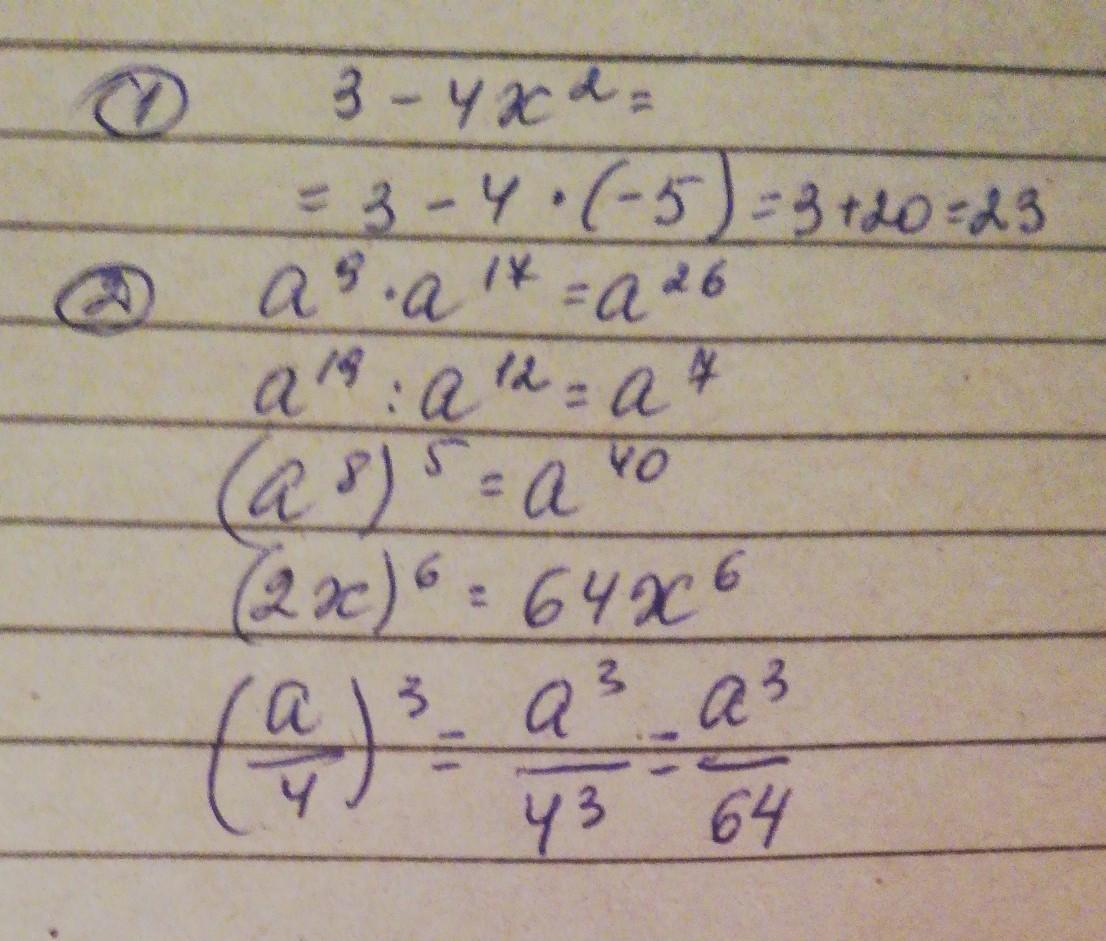 ① 3 - 4x² =
= 3 - 4 · (-5) = 3 + 20 = 23
② a⁹ · a¹⁷ = a²⁶
a¹⁹ : a¹² = a⁷
(a⁸)⁵ = a⁴⁰
(2x)⁶ = 64x⁶
(a/4)³ = a³/4³ = a³/64